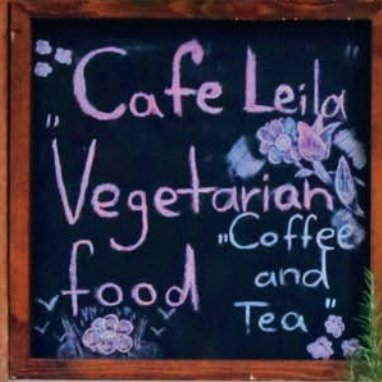 Cafe Leila"
"Vegetarian
food
„Coffee
and
Tea"